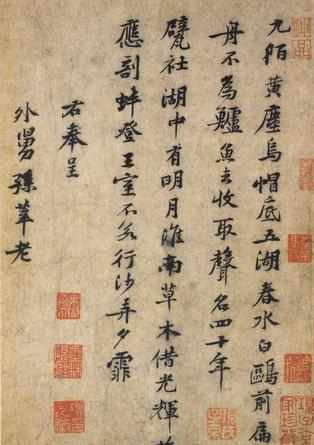 九陌黃塵烏帽底五湖春水白鷗前扁
舟不為鱸魚去收取聲名四十年
甓社湖中有明月淮南草木借光輝故
應剖蚌登王室不若行沙弄夕霏
右奉呈
外舅孫莘老